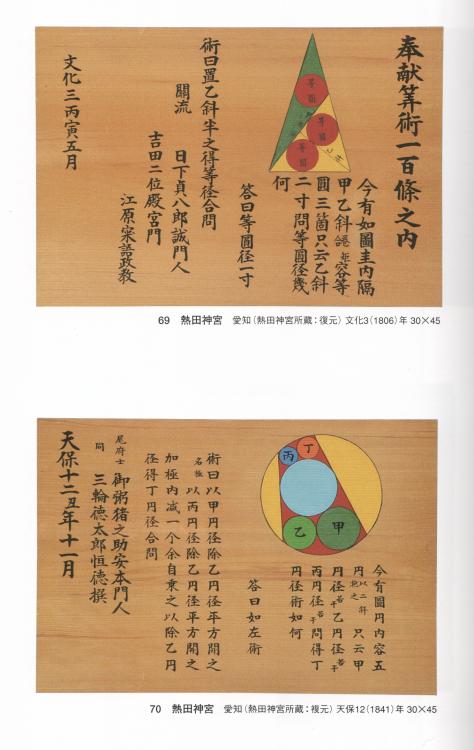 奉献筭術一百條之内
等圓
等圓
等圓
今有如圖圭内隔
甲乙斜 容等
圓三箇只云乙斜
二寸問等圓徑幾
何
答曰等圓径一寸
術曰置乙斜半之得等径合問
關流 日下貞八郎誠門人
吉田二位殿宮門
江原 語政教
文化三丙寅五月
69 熱田神宮 愛知(熱田神宮所蔵:復元) 文化3(1806)年 30×45
丁
丙
乙
甲
今有圖円内容五
円以二斜挾之 只云甲
円径若干乙円径若干
丙円径若干問得丁
円径術如何
答曰如左術
術曰以甲円径除乙円径平方開之
名極 以丙円径除乙円径平方開之
加極内减一个余自乗之以除乙円
径得丁円径合問
尾府士 御粥猪之助安本門人
同 三輪德太郎恒德撰
天保十二丑年十一月
70 熱田神宮 愛知(熱田神宮所蔵:複元) 天保12(1841)年 30×45